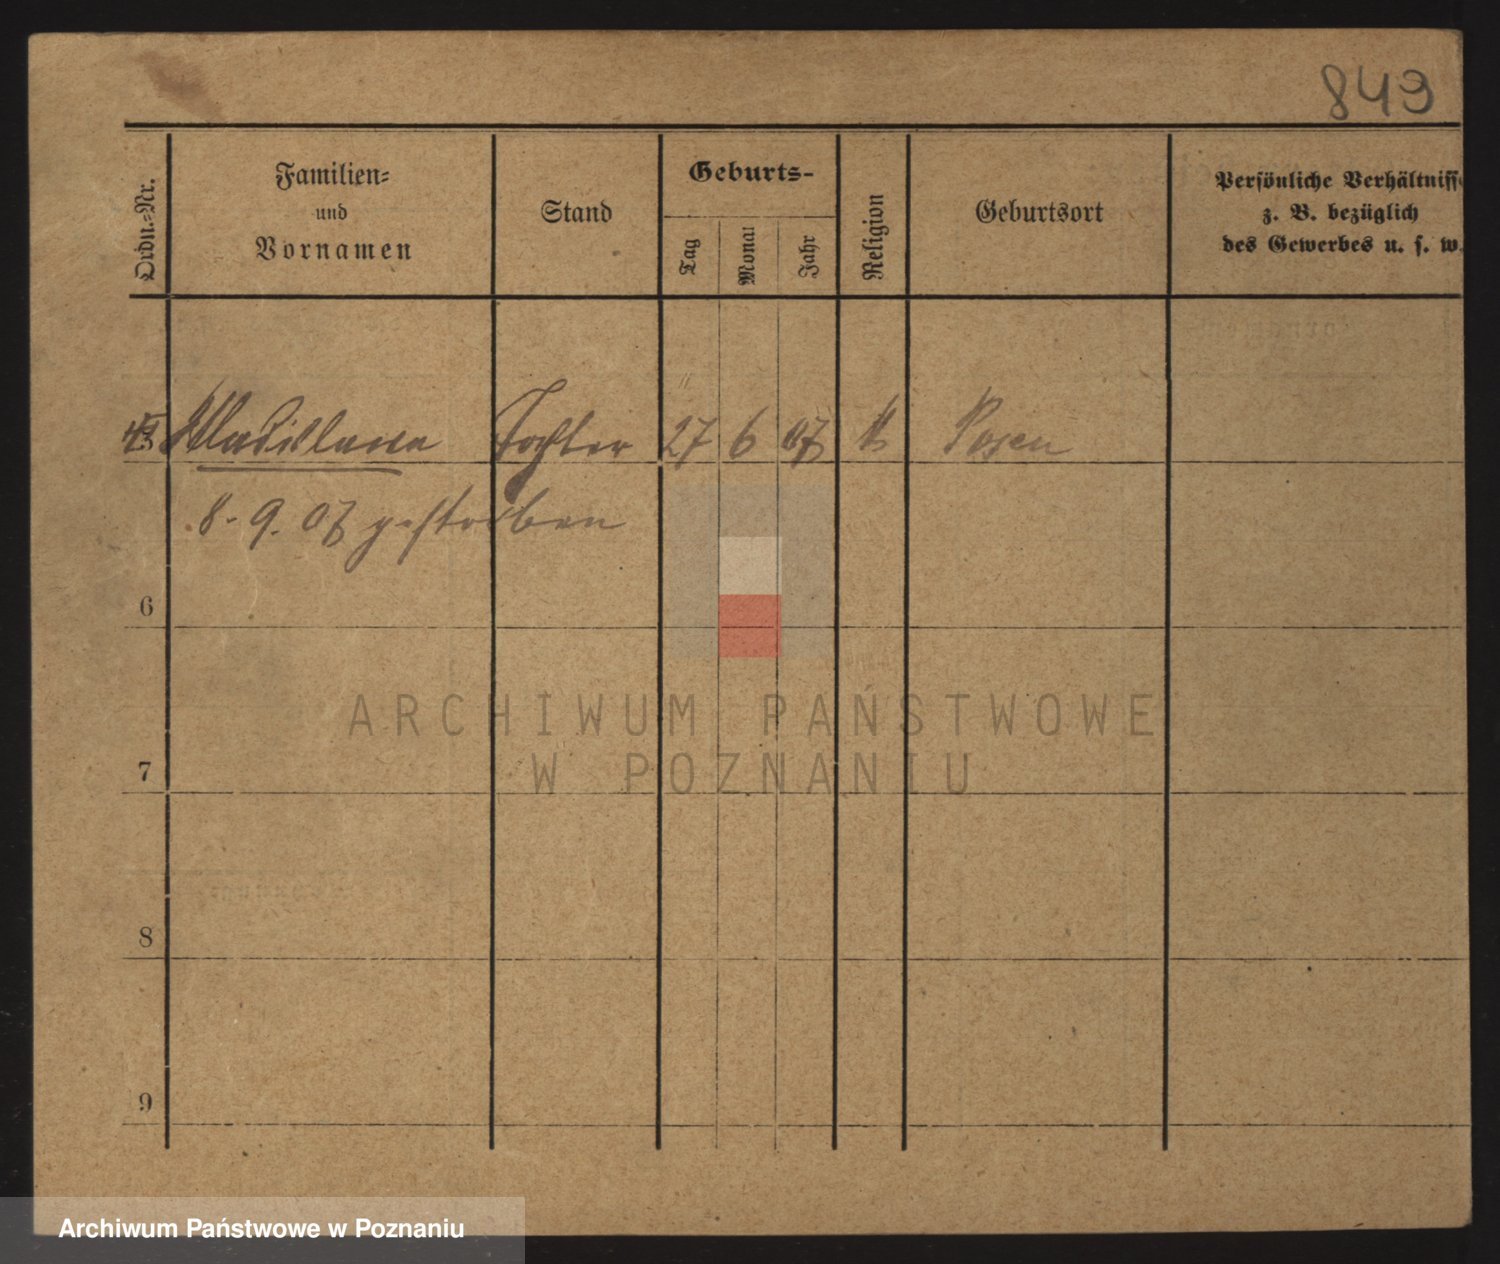 849
Ordn.=Nr.
Familien=
und
Vornamen
Stand
Geburts-
Tag
Monat
Jahr
Religion
Geburtsort
Persönliche Verhältnisse
z. B. bezüglich
des Gewerbes u. s. w.
Wladislawa Tochter 27 6 07 k Posen
8. 9. 07 gestorben
6
7
8
9
ARCHIWUM PAŃSTWOWE
W POZNANIU
Archiwum Państwowe w Poznaniu